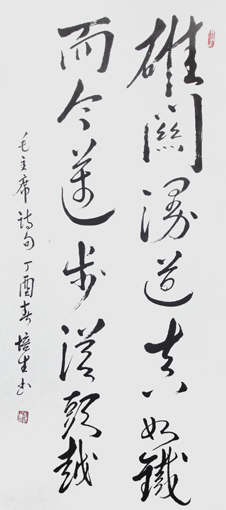 雄関漫道真如鐵
而今邁步從頭越
毛主席詩句丁酉春培生書